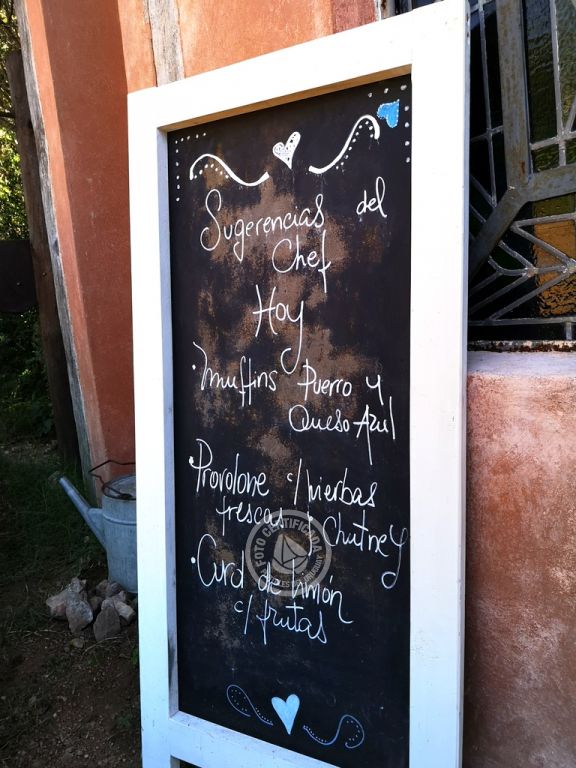 Sugerencias del
Chef
Hoy
·Muffins Puerro y
Queso Azul
·Provolone c/hierbas
frescas y Chutney
·Curd de limón
c/frutas
FOTO CERTIFICADA